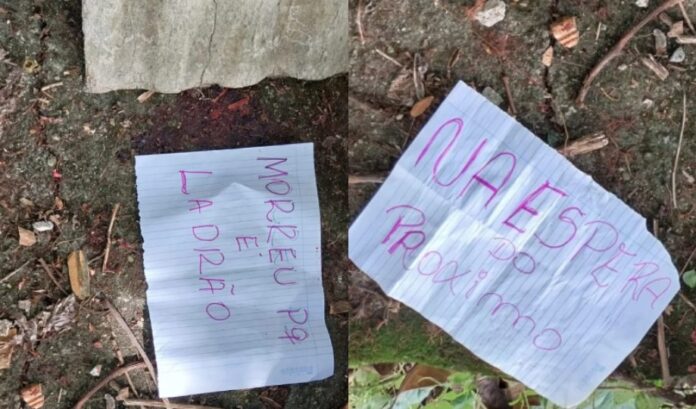 MORREU PQ
É
LADRÃO
NA ESPERA
DO
PROXIMO